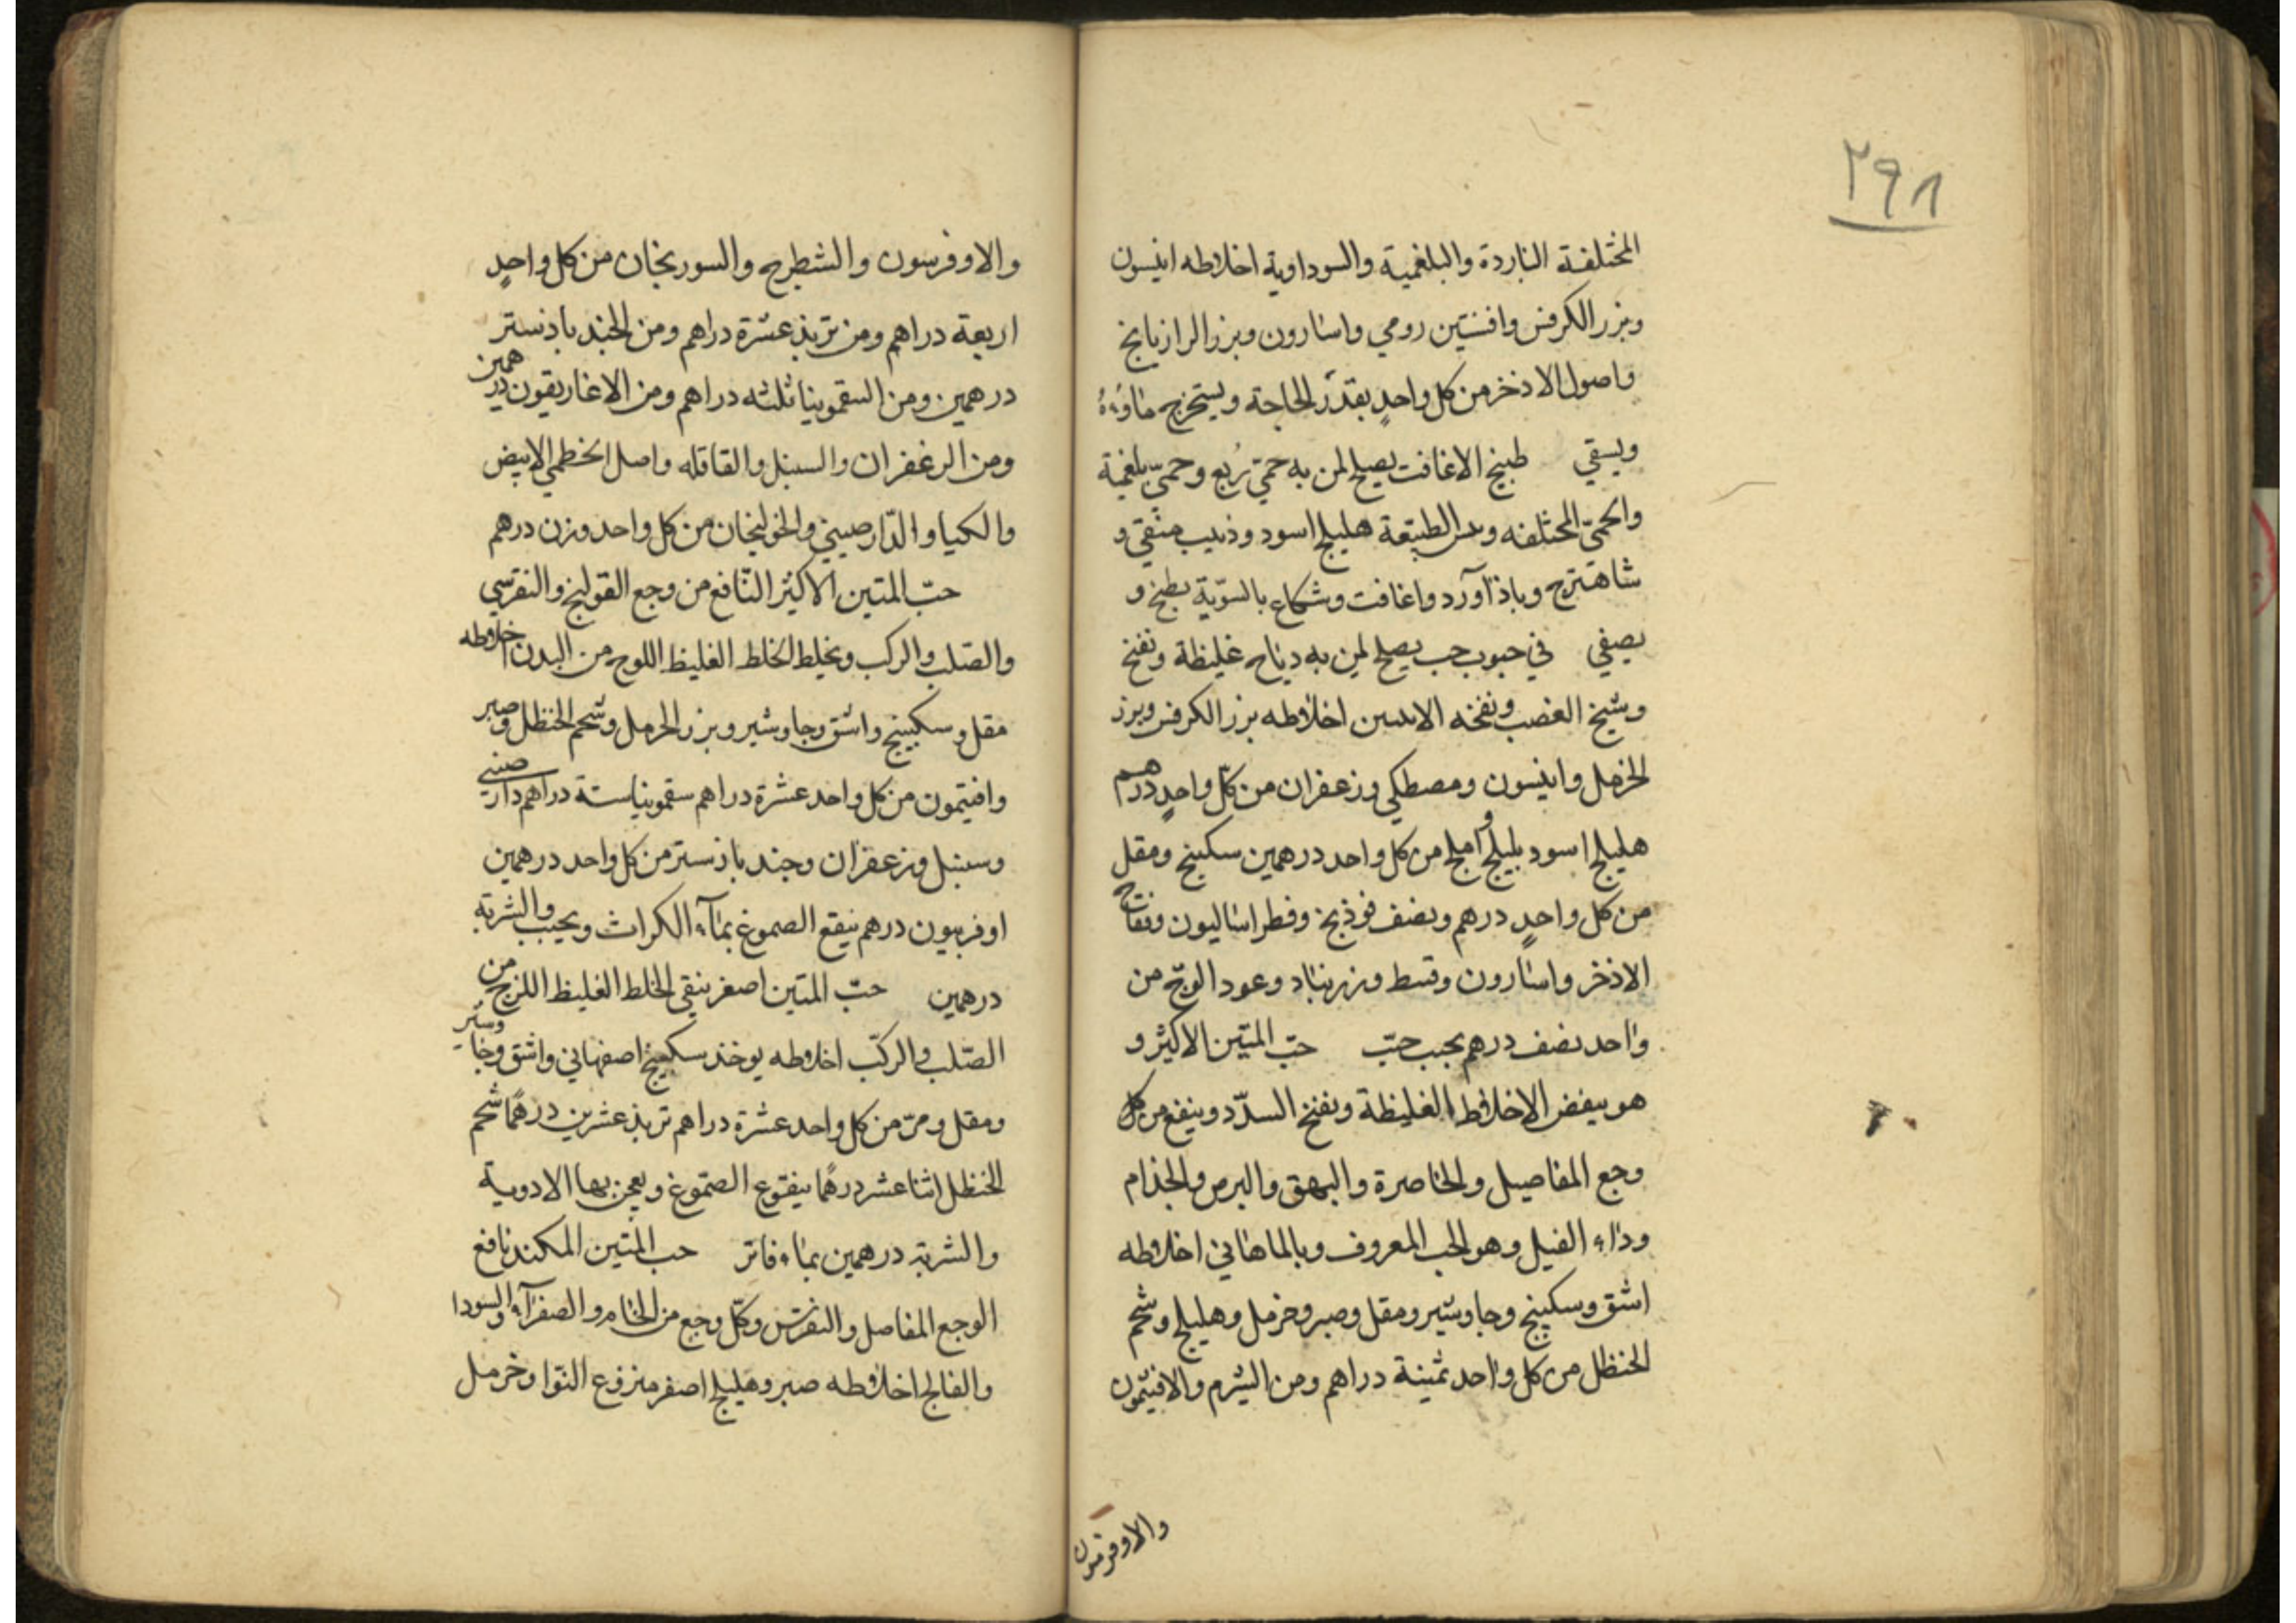 ٢٩٨
المختلفة الباردة والبلغمية والسوداوية اخلاطه انيسون
وبزر الكرفس وافسنتين رومي واسارون وبزر الرازيانج
واصول الاذخر من كل واحدٍ بقدر الحاجة ويستخرج ماؤه
ويسقي طبيخ الاغافت يصلح لمن به حمّي رُبع وحميّ بلغمية
والحمىّ المختلفه الطبيعة هليلج اسود وذبيب منقي و
شاهترج وباذآورد واغافت وشكاع بالسّوية يطبخ و
يصفي في حبوب حب يصلح لمن به رياح غليظة ونفخ
ونفخه اخلاطه بزر الكرفس وبزر
الخرمل وانيسون ومصطكي وزعفران من كلّ واحدٍ درهم
هليلج اسود بليلج و آملج من كل واحد درهمين سكبينج ومقل
من كل واحدٍ درهم ونصف فوذنج وفطراساليون وفقاح
الاذخر واسارون وقسط وزرنباد وعود الوجّ من
واحد نصف درهم يحبب حبّ حبّ المتين الاكبر و
هو ينفض الاخلاط الغليظة ونفخ السدّد وينفع من كل
وجع المفاصيل والخاصرة والبهق والبرص والجذام
وداء الفيل وهو الحب المعروف وبالماهاني اخلاطه
اشق وسكبينج وجاوشير ومقل وصبر وخرمل وهليلج وشحم
الحنظل من كل واحد ثمينة دراهم ومن الشبرم والافتيمون
والاوفربيون
والاوفربيون والشطرج والسوريخان من كل واحدٍ
اربعة دراهم ومن تربذ عشرة دراهم ومن الجند بادنستر
درهمين ومن السقمونيا ثلثه دراهم ومن الاغاريقون درهمين
ومن الزعفران والسنبل والقاقله واصل الخطمي الابيض
والكيا والدّارصيني والخولنجان من كل واحد وزن درهم
حبّ المتين الاكبر النّافع من وجع القولنج والنقرسي
والصّلب والركب ويخلط الخلط الغليظ اللوج من البدن اخلاطه
مقل وسكبينج واشق وجاوشير وبزر الحرمل وشحم الحنظل وصبر
وافتيمون من كل واحد عشرة دراهم سقمونيا ستة دراهم دارصيني
وسنبل وزعفران وجند بادنستر من كل واحد درهمين
اوفربيون درهم ينقع الصموغ بمآء الكراث ويحبب والشربة
درهمين حبّ المتين اصغر ينقي الخلط الغليظ اللزج من
الصّلب والركبّ اخلاطه يوخذ سكبينج اصفهاني واشق وجاوشير
ومقل ومرّ من كل واحد عشرة دراهم تربذ عشرين درهمًا شحم
الحنظل اثنا عشر درهمًا ينقوع الصّموغ ويعجن بها الادوية
والشربة درهمين بماء فاتر حب المتين المكند نافع
الوجع المفاصل والنقرس وكلّ وجع من الخام والصفرآء والسودا
والفالج اخلاطه صبر وهليلج اصفر منزوع النّوا وخرمل